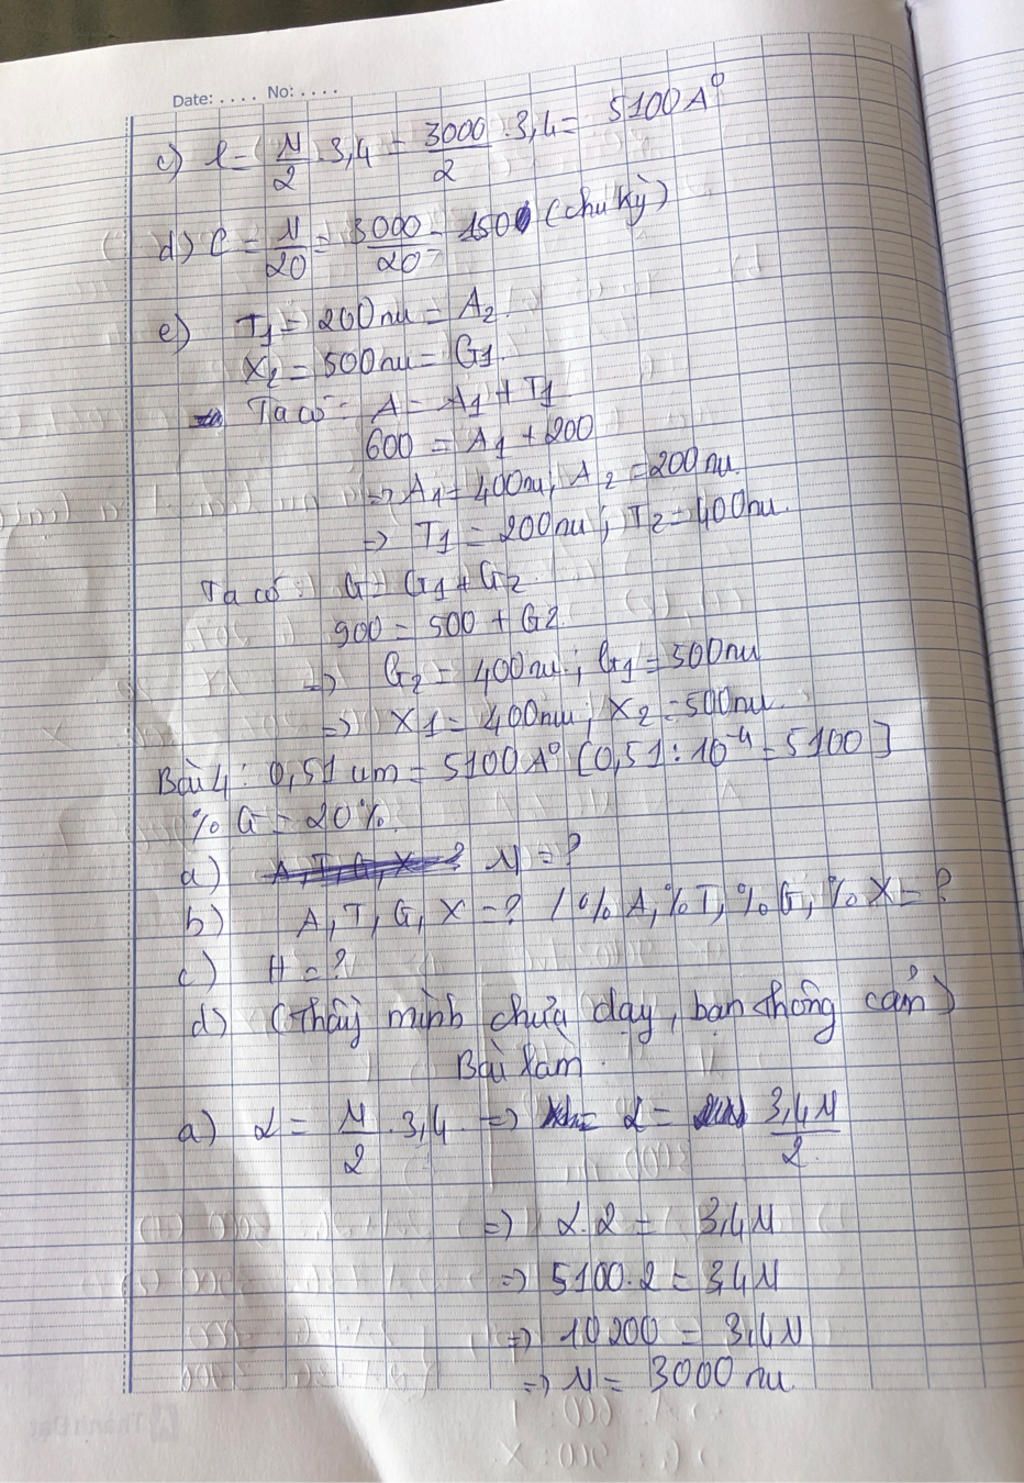 Date: .... No: ....
c) l = N/2 . 3,4 = 3000/2 . 3,4 = 5100 A⁰
d) C = N/20 = 3000/20 = 150 (chu kỳ)
e) T1 = 200 nu = A2.
X2 = 500 nu = G1.
Ta có: A = A1 + T1
600 = A1 + 200
=> A1 = 400 nu; A2 = 200 nu.
=> T1 = 200 nu; T2 = 400 nu.
Ta có: G = G1 + G2.
900 = 500 + G2.
=> G2 = 400 nu; G1 = 500 nu
=> X1 = 400 nu; X2 = 500 nu.
Bài 4: 0,51 um = 5100 A⁰ [0,51 : 10⁻⁴ = 5100]
% G = 20%.
a) A, T, G, X = ? N = ?
b) A, T, G, X = ? / % A, % T, % G, % X = ?
c) H = ?
d) (Thầy mình chưa dạy, bạn thông cản)
Bài làm.
a) L = N/2 . 3,4 => L = 3,4N/2.
=> L.2 = 3,4N
=> 5100.2 = 3,4N
=> 10200 = 3,4N
=> N = 3000 nu.